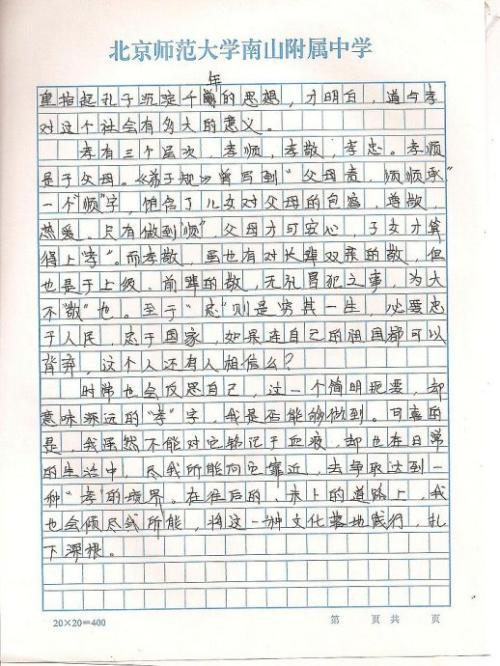 北京师范大学南山附属中学
年
里拾起孔子沉淀千的思想，才明白，道与孝
对这个社会有多大的意义。
孝有三个层次，孝顺，孝敬，孝忠。孝顺
是于父母。《弟子规》曾写到“父母责，须顺承”
一个“顺”字，饱含了儿女对父母的包容，尊敬，
热爱。只有做到“顺”，父母才可安心，子女才算
得上“孝”。而孝敬，虽也有对长辈双亲的敬，但
也是于上级、前辈的敬，无礼冒犯之事，为大
不“敬”也。至于“忠”则是穷其一生，必要忠
于人民，忠于国家，如果连自己的祖国都可以
背弃，这个人还有人相信么？
时常也会反思自己，这一个简明扼要，却
意味深远的“孝”字，我是否能够做到。可喜的
是，我虽然不能对它铭记于血液，却也在日常
的生活中，尽我所能向它靠近，去争取达到一
种“孝”的境界。在往后的，未卜的道路上，我
也会倾尽我所能，将这一种文化落地践行，扎
下深根。
20×20=400 第 页 共 页